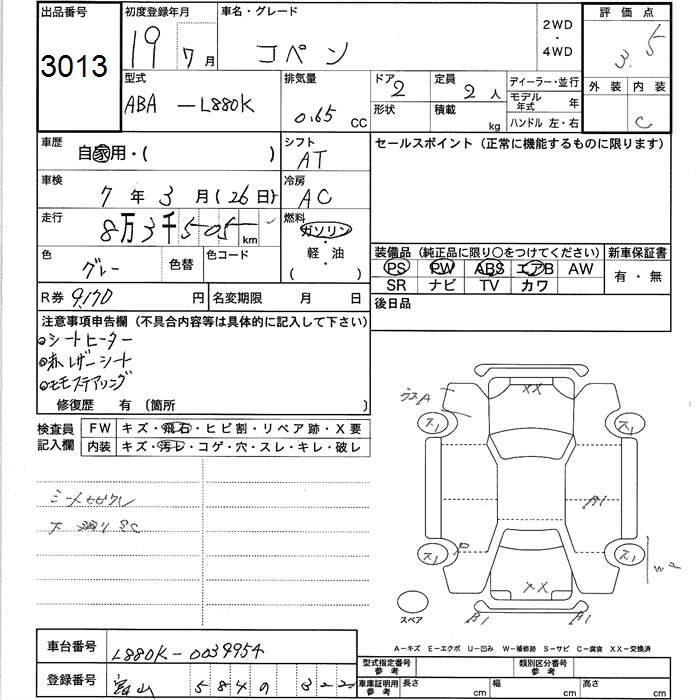 出品番号
3013
初度登録年月
19 7月
車名・グレード
コペン
2WD
・
4WD
評価点
3.5
型式
ABA -L880K
排気量
0.65 CC
ドア 2
形状
定員 2 人
積載 kg
ディーラー・並行
モデル年式 年
ハンドル 左・右
外装 内装
C
車歴
自家用・( )
シフト
AT
セールスポイント (正常に機能するものに限ります)
車検
7年3月(26日)
冷房
AC
走行
8万3千505 km
燃料
ガソリン
・
軽・油
( )
色
グレー
色替
色コード
装備品 (純正品に限り○をつけてください)
新車保証書
PS PW ABS エアB AW
SR ナビ TV カワ
有・無
R券 9,170 円
名変期限 月 日
後日品
注意事項申告欄 (不具合内容等は具体的に記入して下さい)
シートヒーター
赤レザーシート
モモステアリング
修復歴 有 〔箇所 〕
検査員記入欄
FW キズ・飛石・ヒビ割・リペア跡・X要
内装 キズ・汚レ・コゲ・穴・スレ・キレ・破レ
XX
ウスA
ス1
ス1
A1
ス1
ス1
P
XX
B1
B1
スペア
A−キズ E−エクボ U−凹み W−補修跡 S−サビ C−腐食 XX−交換済
車台番号
L880K-0039954
登録番号
富山
型式指定番号 参考
類別区分番号 参考
車庫証明用 参考
長さ cm
幅 cm
高さ cm